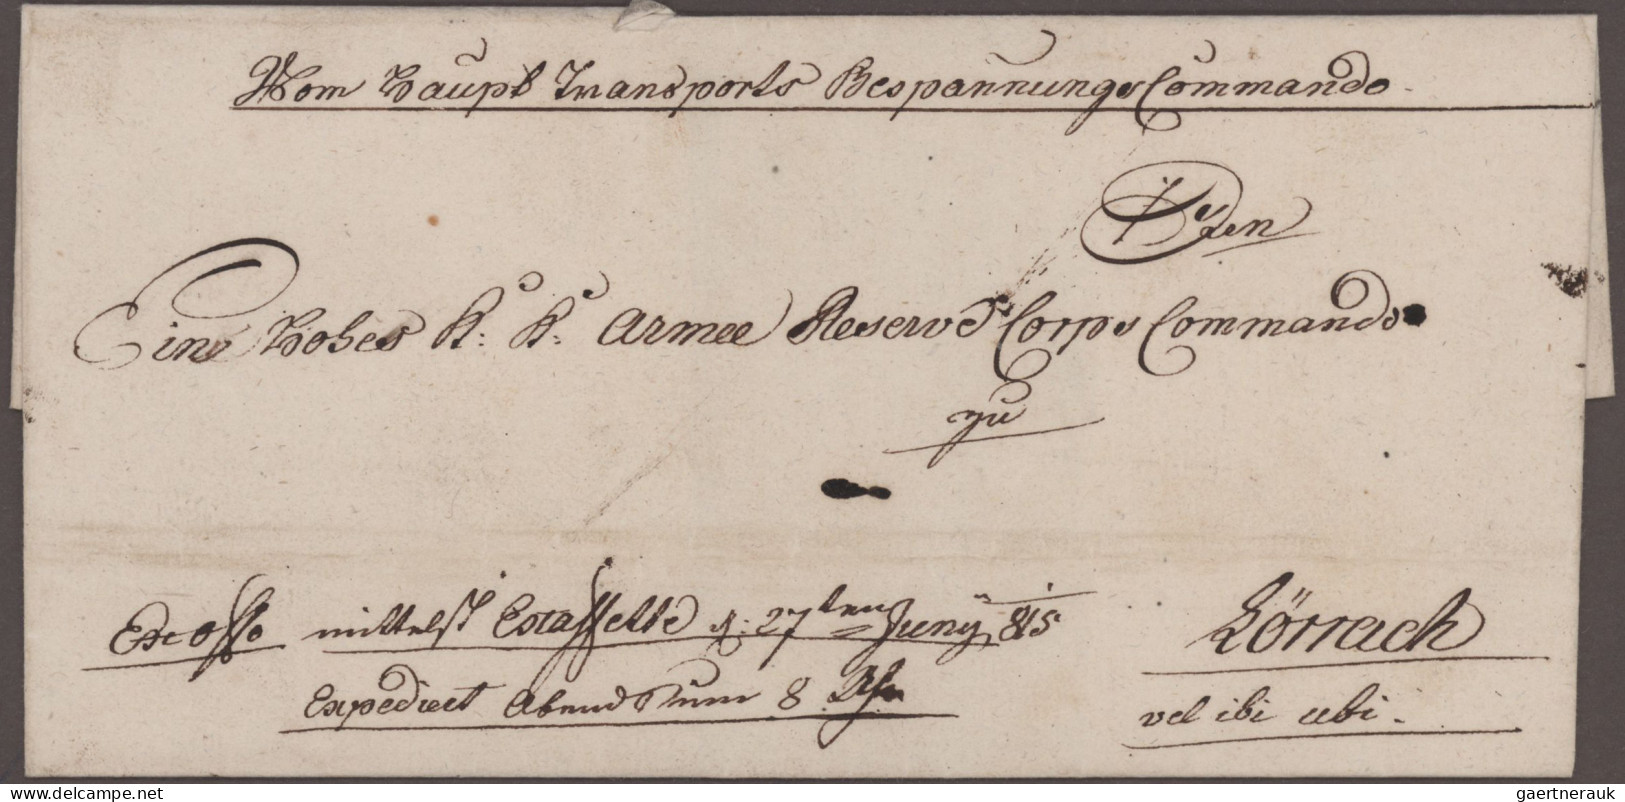 Vom Haupt Transports Bespannungs Commando
An
Ein Hohes K: K: Armee Reserve Corps Commando
zu
Ex offo mittelst Estaffette d: 27ten Juny 815
Expediert Abends um 8 Uhr
Lörrach
vel ibi ubi.
www.delcampe.net
gaertnerauk